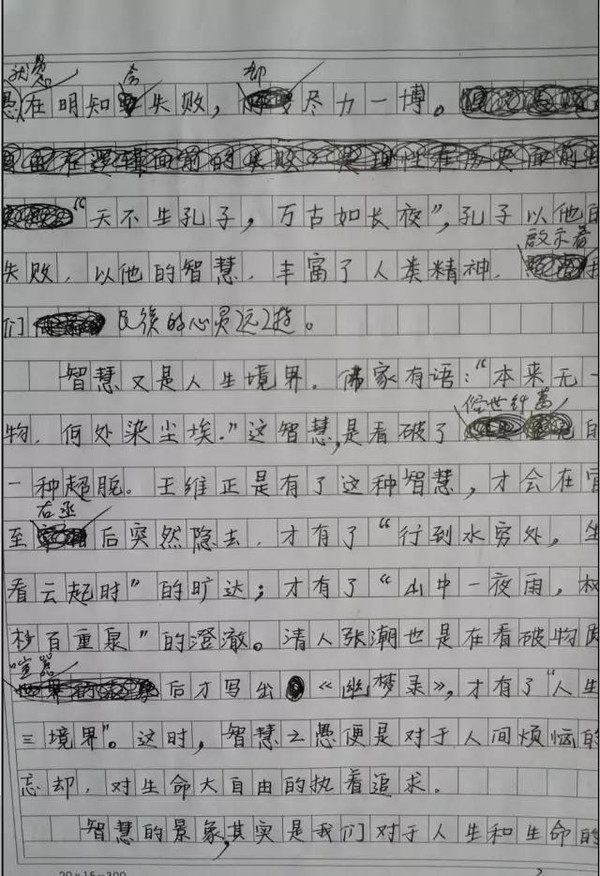 愚在明知会失败，却尽力一博。
“天不生孔子，万古如长夜”，孔子以他的
失败，以他的智慧，丰富了人类精神，啟示着我
们民族的心灵
智慧又是人生境界。佛家有语：“本来无一
物，何处染尘埃。”这智慧，是看破了俗世纤尘的
一种超脱。王维正是有了这种智慧，才会在官
至右丞后突然隐去，才有了“行到水穷处，坐
看云起时”的旷达；才有了“山中一夜雨，树
杪百重泉”的澄澈。清人张潮也是在看破物
喧嚣后才写出《幽梦录》，才有了“人生
三境界”。这时，智慧之愚便是对于人间烦恼的
忘却，对生命大自由的执着追求。
智慧的景象，其实是我们对于人生和生命的
20×15=300